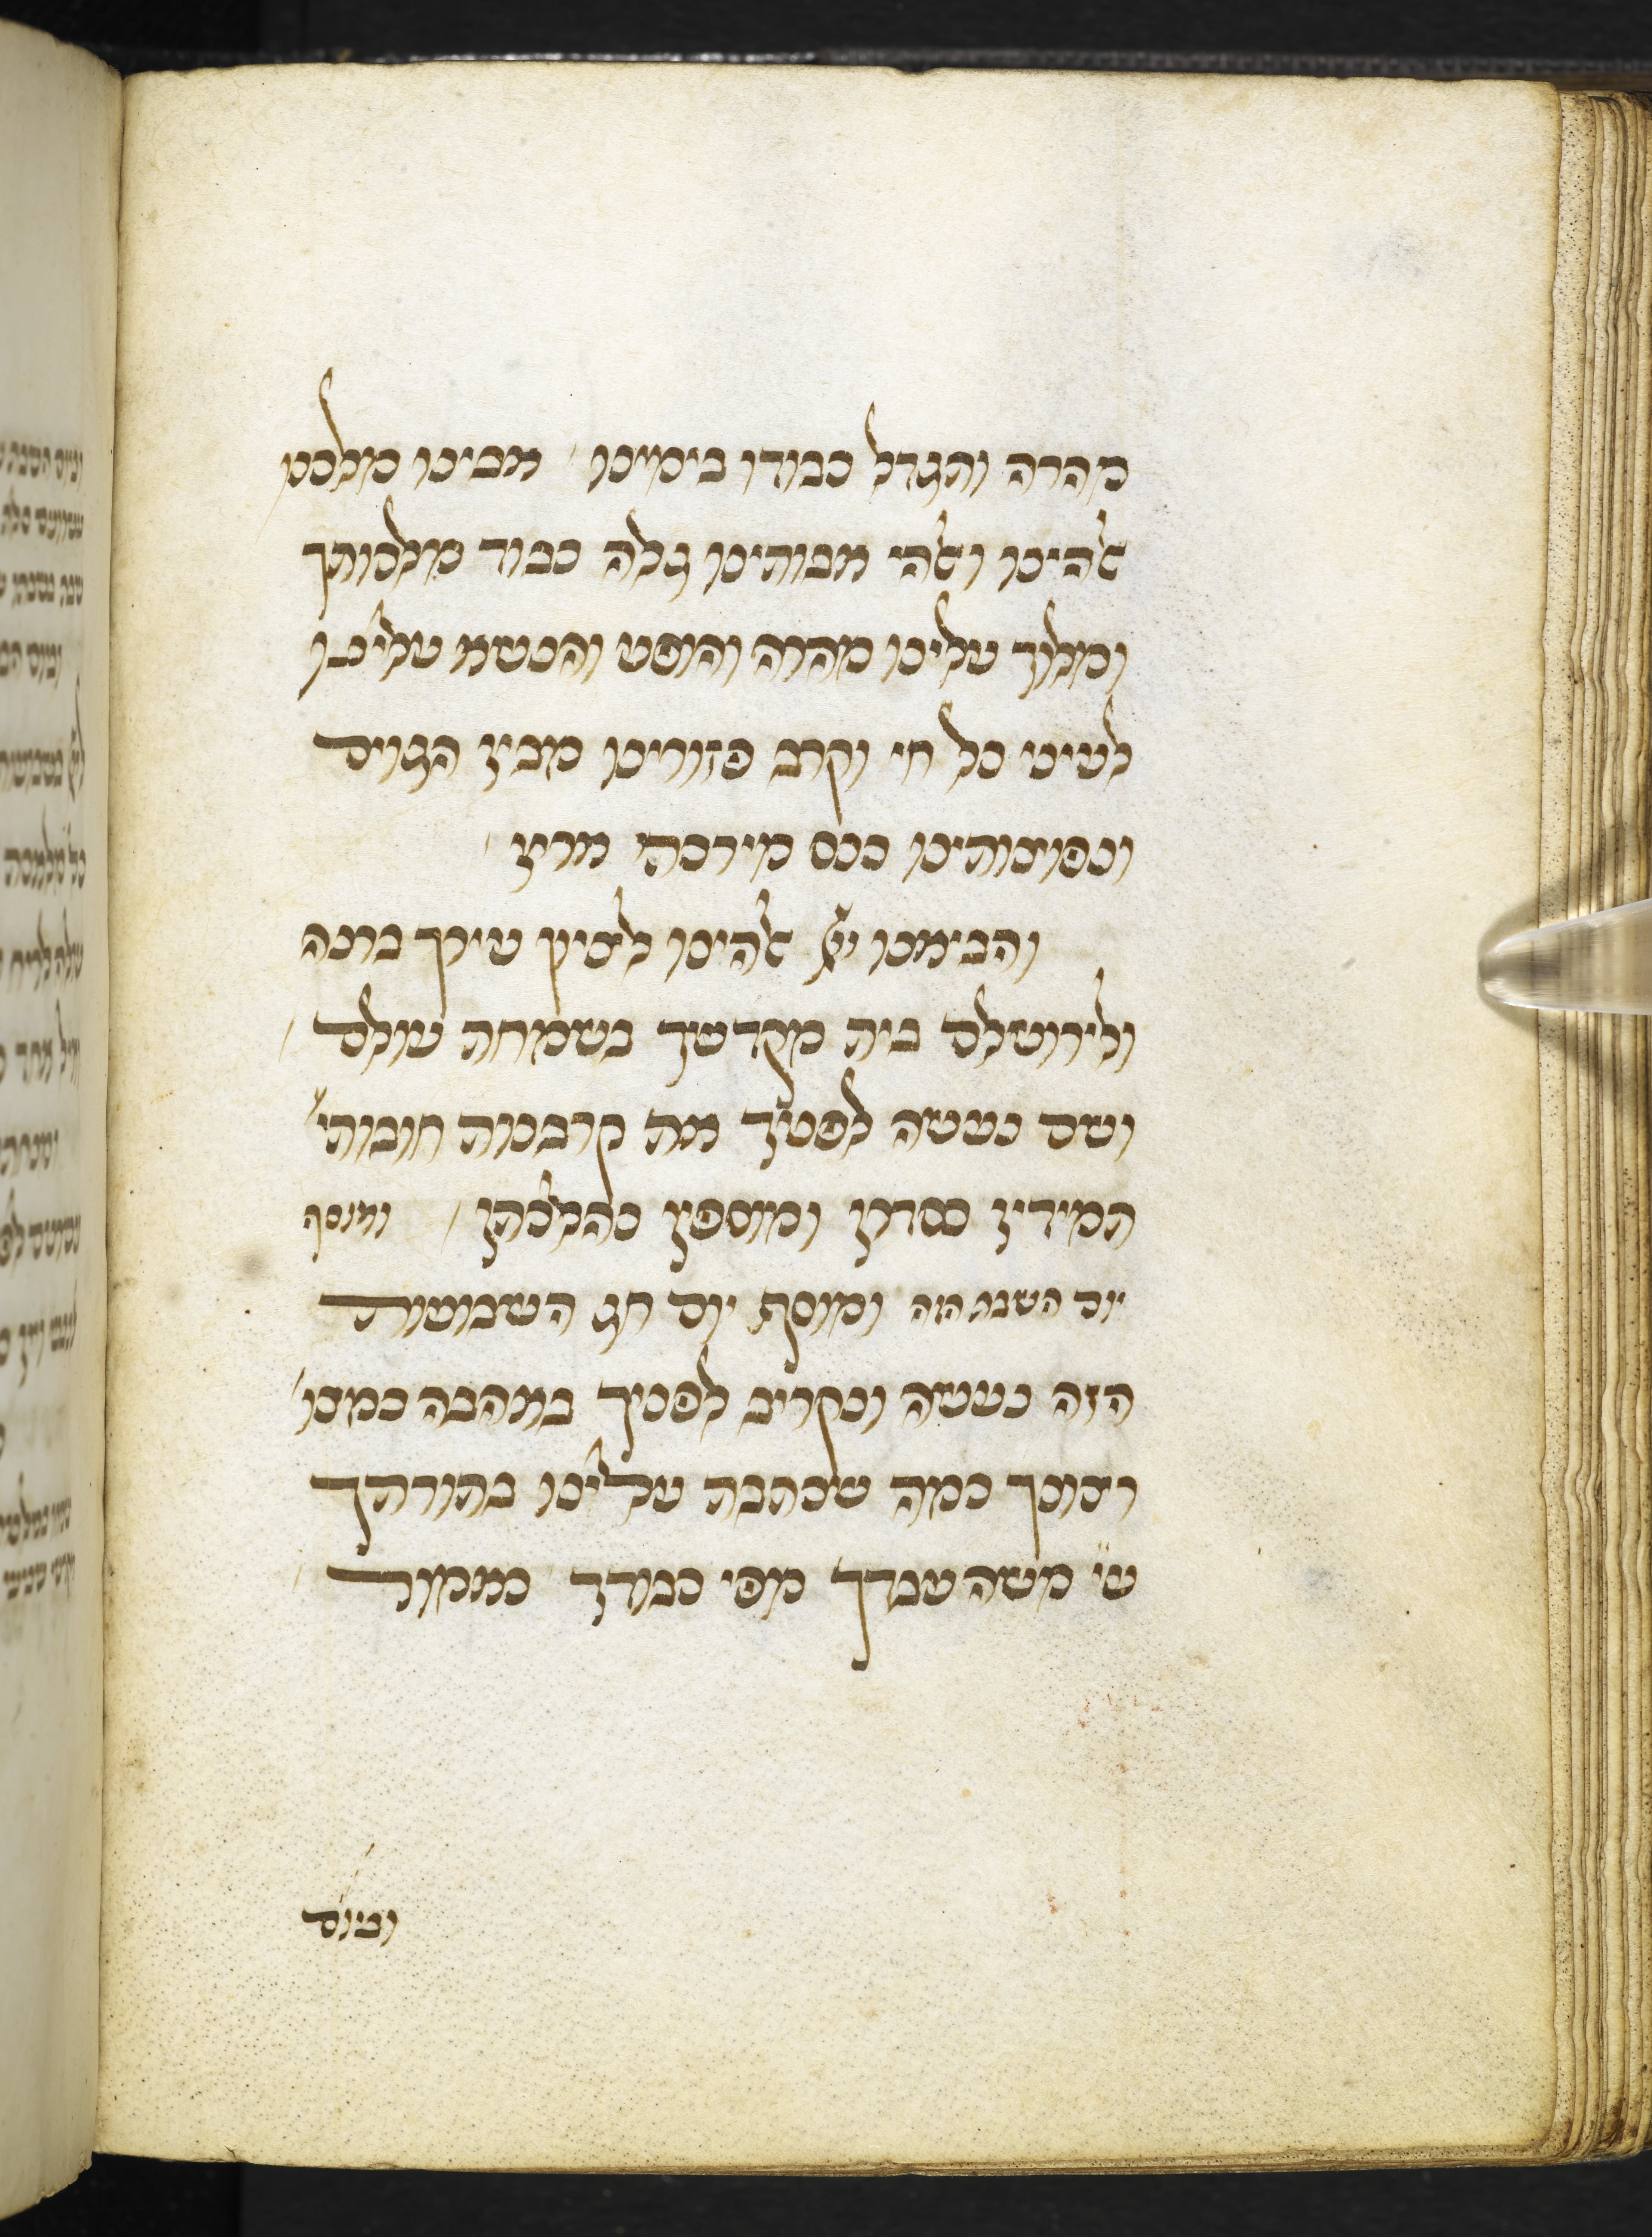 מהרה ותגדל כבודו בימינו אבינו מלכנו
אלהינו ואלהי אבותינו גלה כבוד מלכותך
ומלוך עלינו מהרה והופע והנשא עלינו
לעיני כל חי וקרב פזורינו מבין הגוים
ונפוצותינו כנס מירכתי ארץ
והביאנו יי אלהינו לציון עירך ברנה
ולירושלם בית מקדשך בשמחת עולם
ושם נעשה לפניך את קרבנות חובותי׳
תמידין כסדרן ומוספין כהלכתן ומוסף
יום השבת הזה ומוסף יום חג השבועות
הזה נעשה ונקריב לפניך באהבה כמצו׳
רצונך כמה שכתבת עלינו בתורתך
ע״י משה עבדך מפי כבודך כאמור
וביום